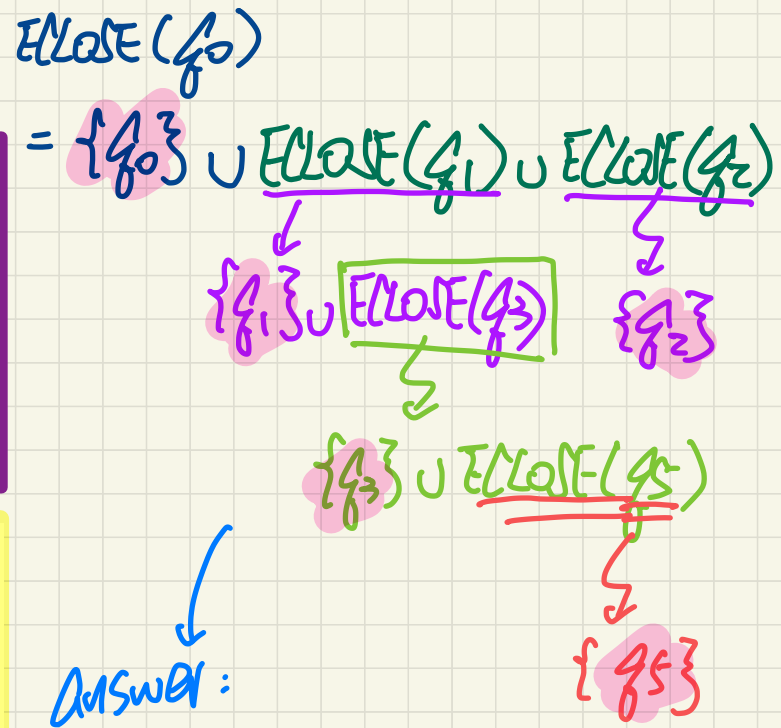 ECLOSE(q0)
= {q0} ∪ ECLOSE(q1) ∪ ECLOSE(q2)
{q1} ∪ ECLOSE(q3) {q2}
{q3} ∪ ECLOSE(q5)
{q5}
Answer: